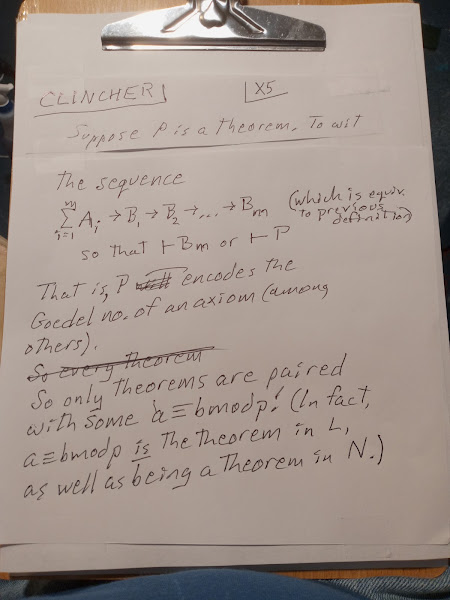 CLINCHER X5
Suppose P is a theorem. To wit
the sequence
m
∑ Ai → B1 → B2 → ... → Bm (which is equiv. to previous definition)
i=1
so that ⊢ Bm or ⊢ P
That is, P encodes the
Goedel no. of an axiom (among
others).
So every theorem
So only theorems are paired
with some a≡bmodp! (In fact,
a≡bmodp is the theorem in L,
as well as being a theorem in N.)